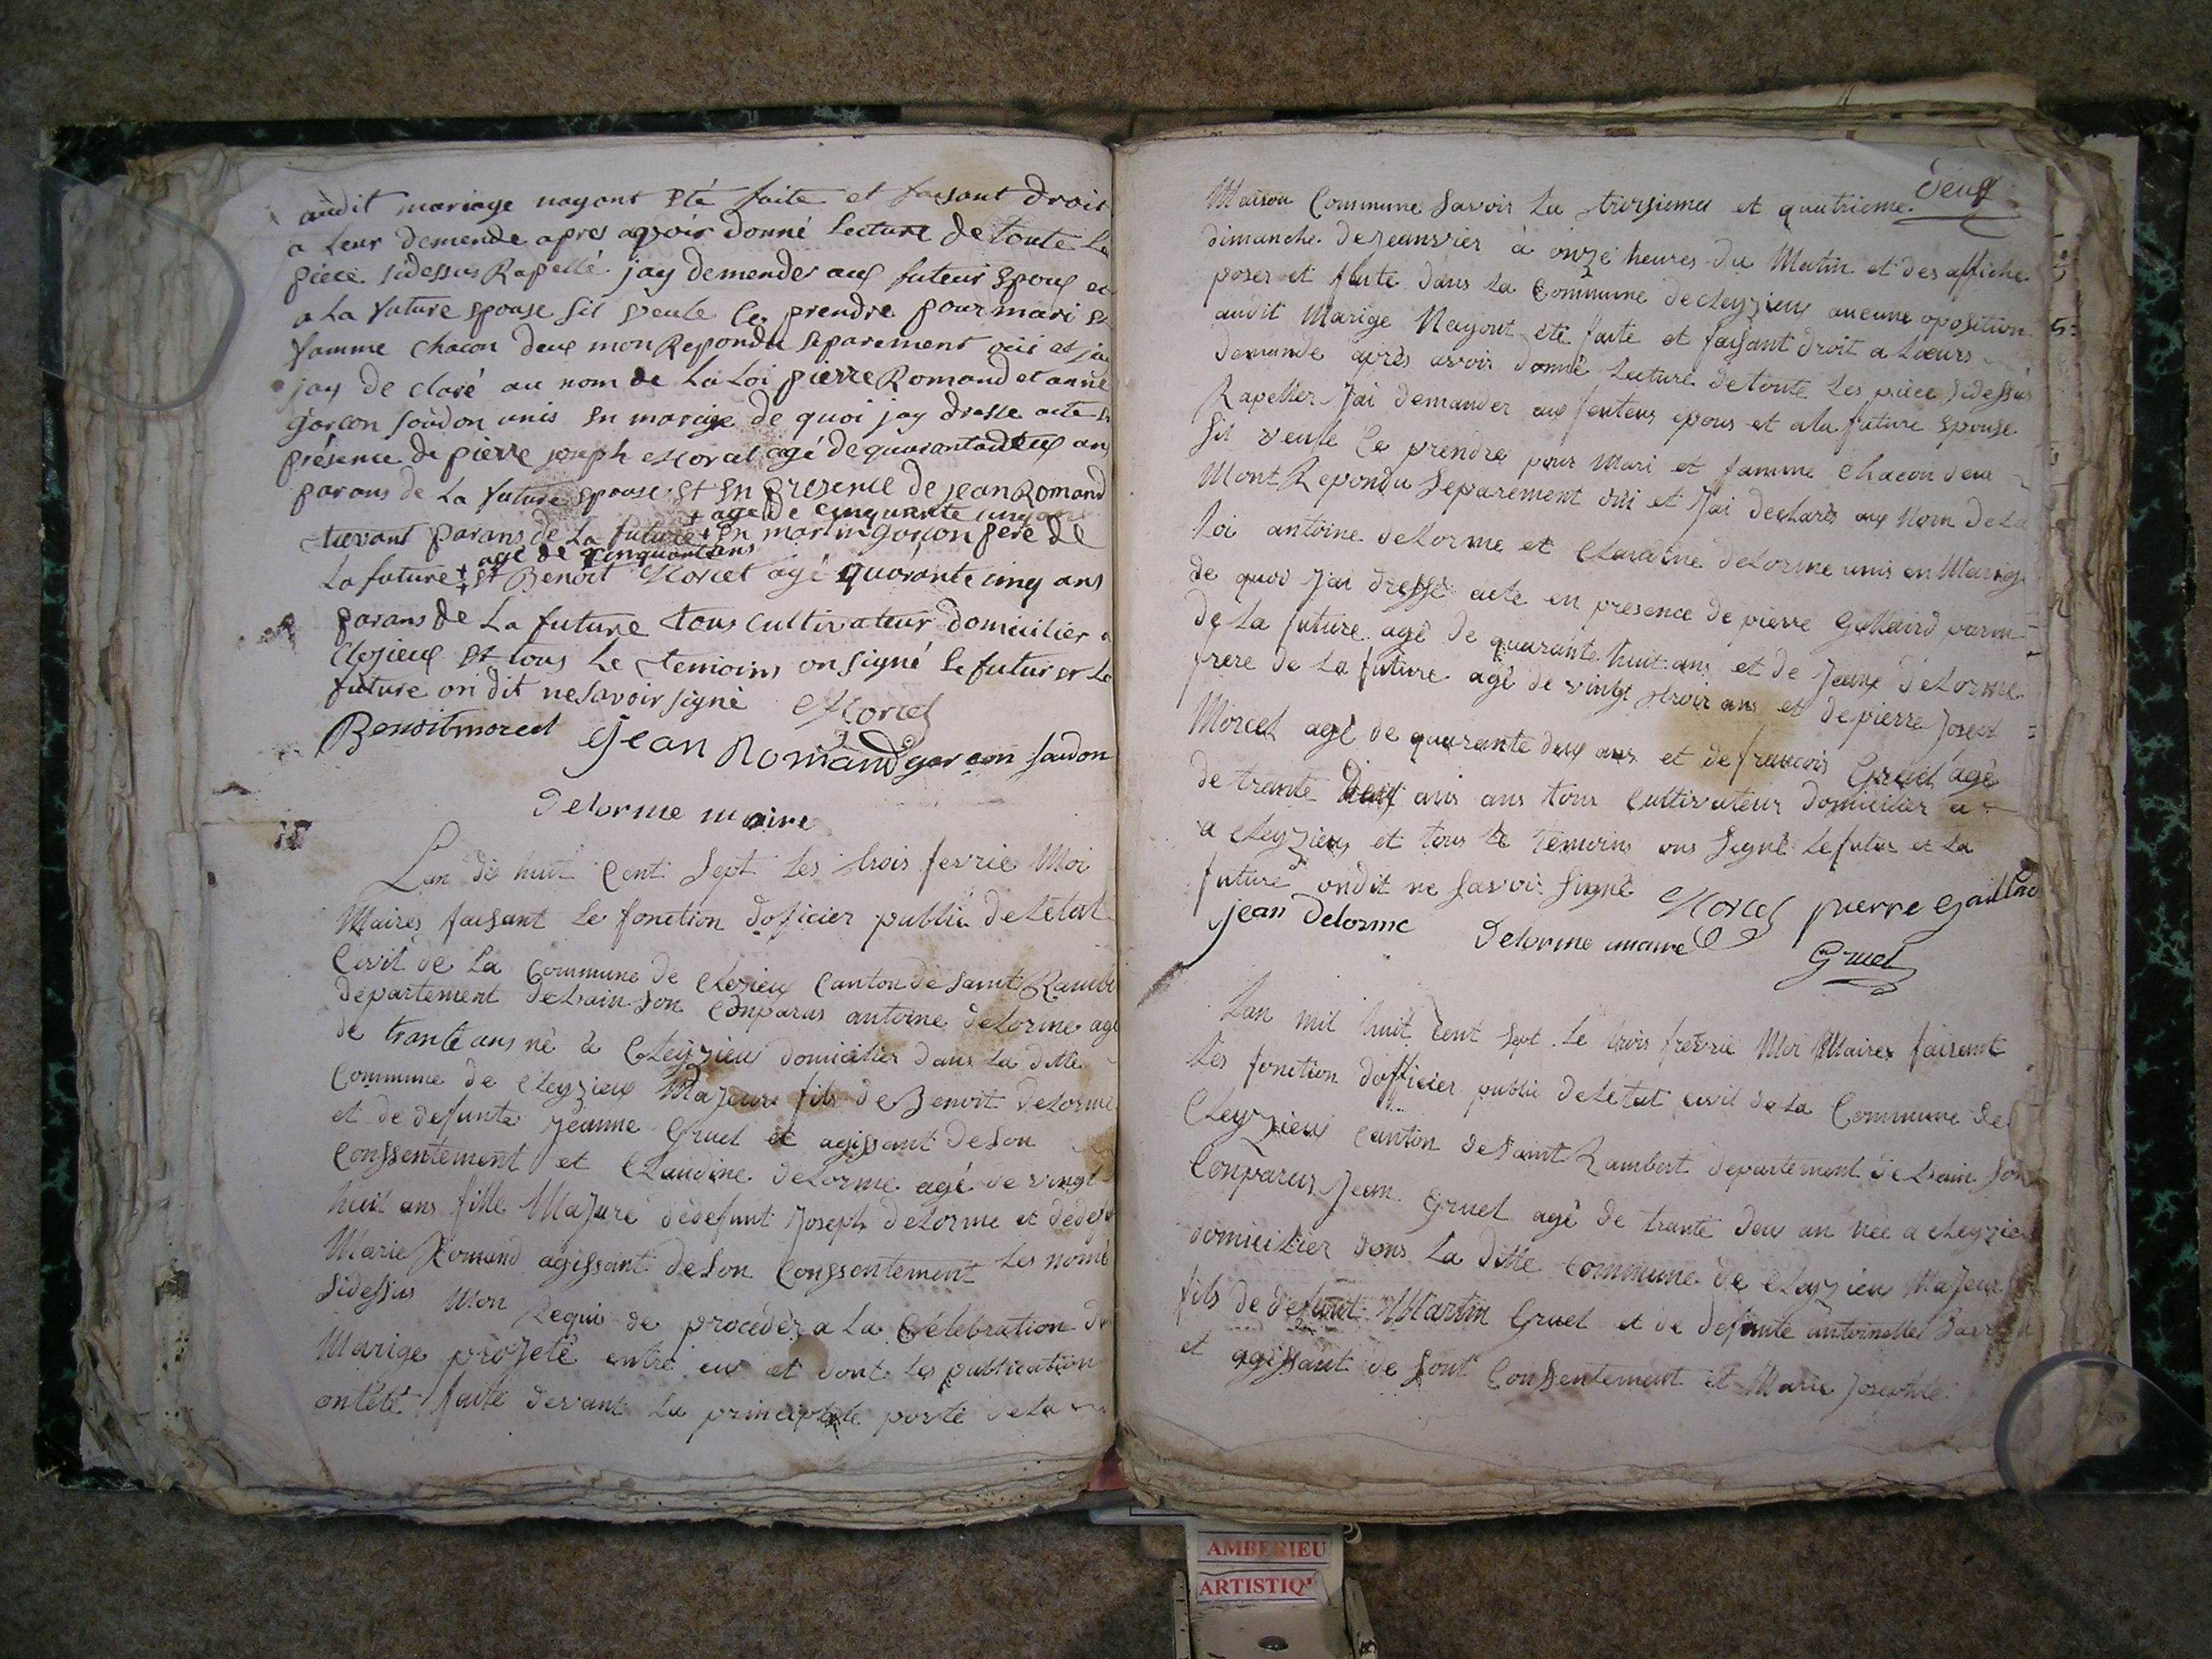 audit mariage nayant Eté faite et faisant droit
a Leur demende apres avoir donné Lecture de toute La
piéce sidessus Rapellé jay demender aux futeur Epoux et
a La future Epouse sil veule ce prendre pour mari et
famme chacon deux mon Repondu separement oui et
jay de claré au nom de La Loi pierre Romand et anne
garcon soudon unis En mariage de quoi jay dresse acte En
présence de pierre joseph Morcel agé de quarantadeux an
parans de La future Epouse Et En présence de jean Romand
+ age de cinquante cinq ans
parans de La future + En martin garcon pere de
agé de cinquante ans
La future + Et Benoit Morcel agé quarante cinq ans
parans de La future tous cultivateur domicilier a
Cleyzieux Et tous Le temoins on signé Le futur et La
future on dit ne savoir signé Morcel
Benoit morcel jean Romand garcon saudon
Delorme maire
Lan di huit Cent Sept Les trois fevrie Moi
Maires faisant Le fonction doficier public de Letat
Civil de La Commune de Clezieu Canton de Saint Rambe
departement de Lain Son Conparus antoine delorme agé
de trante ans né à Cleyzieu domicilier dans La ditte
Commune de Cleyzieu Majeur fils de Benoit delorme
et de defunte Jeanne Gruel et agissant de Son
Conssentement et Claudine delorme agé de vingt
huit ans fille Majure de defunt Joseph delorme et de def
Marie Romand agissant de Son Conssentement Les nomé
Sidessus Mon Requi de procedèr a La Célébration du
Marige projeté entre eu et dont Les publication
ontété faite devant La principale porte de La
deux
Maison Commune Savoir La troisieme et quatrieme
dimanche de Jeanvier à onze heures du Matin et des affiche
poser et faite dans La Commune de Cleyzieux aucune oposition
audit Marige Nayont été faite et faisant droit a Loeurs
demande après avoir donné Lecture de toute Les pièce Sidessus
Rapeller Jai demander aux feuteur epous et ala future Epouse
Sil veule Ce prendre pour Mari et famme Chacon deux
Mont Repondu Separement oui et Jai declaré au Nom de La
Loi antoine delorme et Claudine delorme unis en Marige
de quoi Jai dressé acte en presence de pierre Gallaird paran
de La future agé de quarante huit ans et de Jean delorme
frere de La future agé de vingt trois ans et de pierre Joseph
Morcel agé de quarante deux ans et de francois Gruel agé
de trante deux ans ans tous Cultivateur domicilier a
a Cleyzieu et tous Le temoins ons Signé Le futur et La
future ondit ne Savoir Signé Morcel pierre Gaillard
jean Delorme Delorme maire Gruel
Lan mil huit Cent Sept Le trois fevrie Moi Maires faisant
Les fonction dofficier public de Letat civil de La Commune de
Cleyzieu Canton de Saint Rambert departement de Lain Son
Conparus Jean Gruel agé de trante deu an née a Cleyzieu
domicilier dans La ditte Commune de Cleyzieu Majeur
fils de defunt Martin Gruel et de defunte antoinette
et agissant de Sont Conssentement et Marie Josephte
AMBERIEU
ARTISTIQ